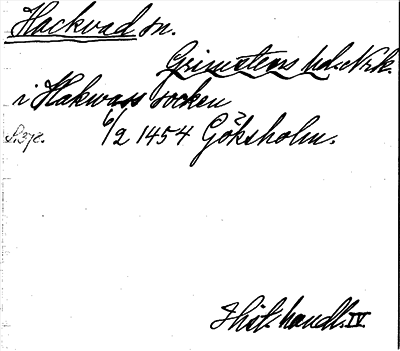 Hackvad sn.
Grimstens hd. Nrk.
i Hakwass socken
S. 372. 6/2 1454 Göksholm.
Hist. handl. IV